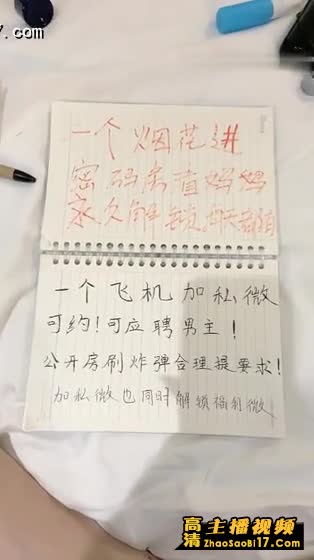 7.com
一个烟花进
密码房渣妈妈
永久解锁每天都拍
一个飞机加私微
可约!可应聘男主!
公开房刷炸弹合理提要求!
加私微也同时解锁福利微
高清 主播视频
ZhaoSaoBi17.com